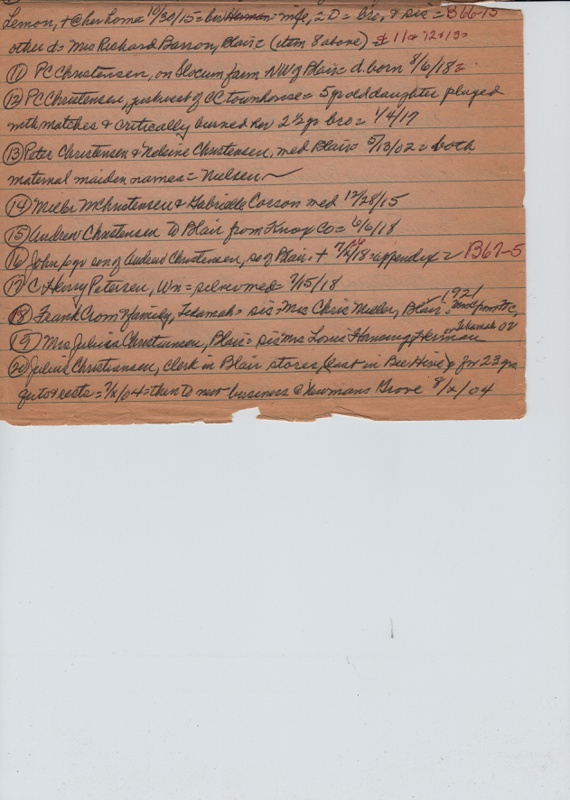 Lemon, + @ her home 10/30/15 = bur Herman = wife, 2 D = bro, & sis = B66-15
other d = Mrs Richard Barron, Blair = (item 8 above) # 11 & 12 & 13 =
(11) PC Christensen, on Slocum farm NW of Blair = d. born 8/6/18 =
(12) PC Christensen, just west of CC townhouse = 5 yr old daughter played
with matches & critically burned her 2½ yr bro = 1/4/17
(13) Peter Christensen & Christensen, med Blair = 5/13/02 = both
maternal maiden names = Nielsen
(14) M Christensen & Gabrielle Cosson med 12/28/15
(15) Andrew Christensen to Blair from Knox Co = 6/6/18
(16) John, 6 yr son of Andrew Christensen, se of Blair, + /18 = appendix = B67-5
(17) C Harry Petersen, Wn = med 7/15/18
(18) Frank Crom & family, Tekamah = sis = Mrs Chris Miller, Blair = 1921
(19) Mrs Julius Christiansen, Blair = sis Mrs Louis Hansen, Herman
or Tekamah
(20) Julius Christiansen, clerk in Blair stores, (last in Bee Hive) for 23 yrs
quits & rests = 7/x/04 = then to new business @ Newmans Grove 8/x/04